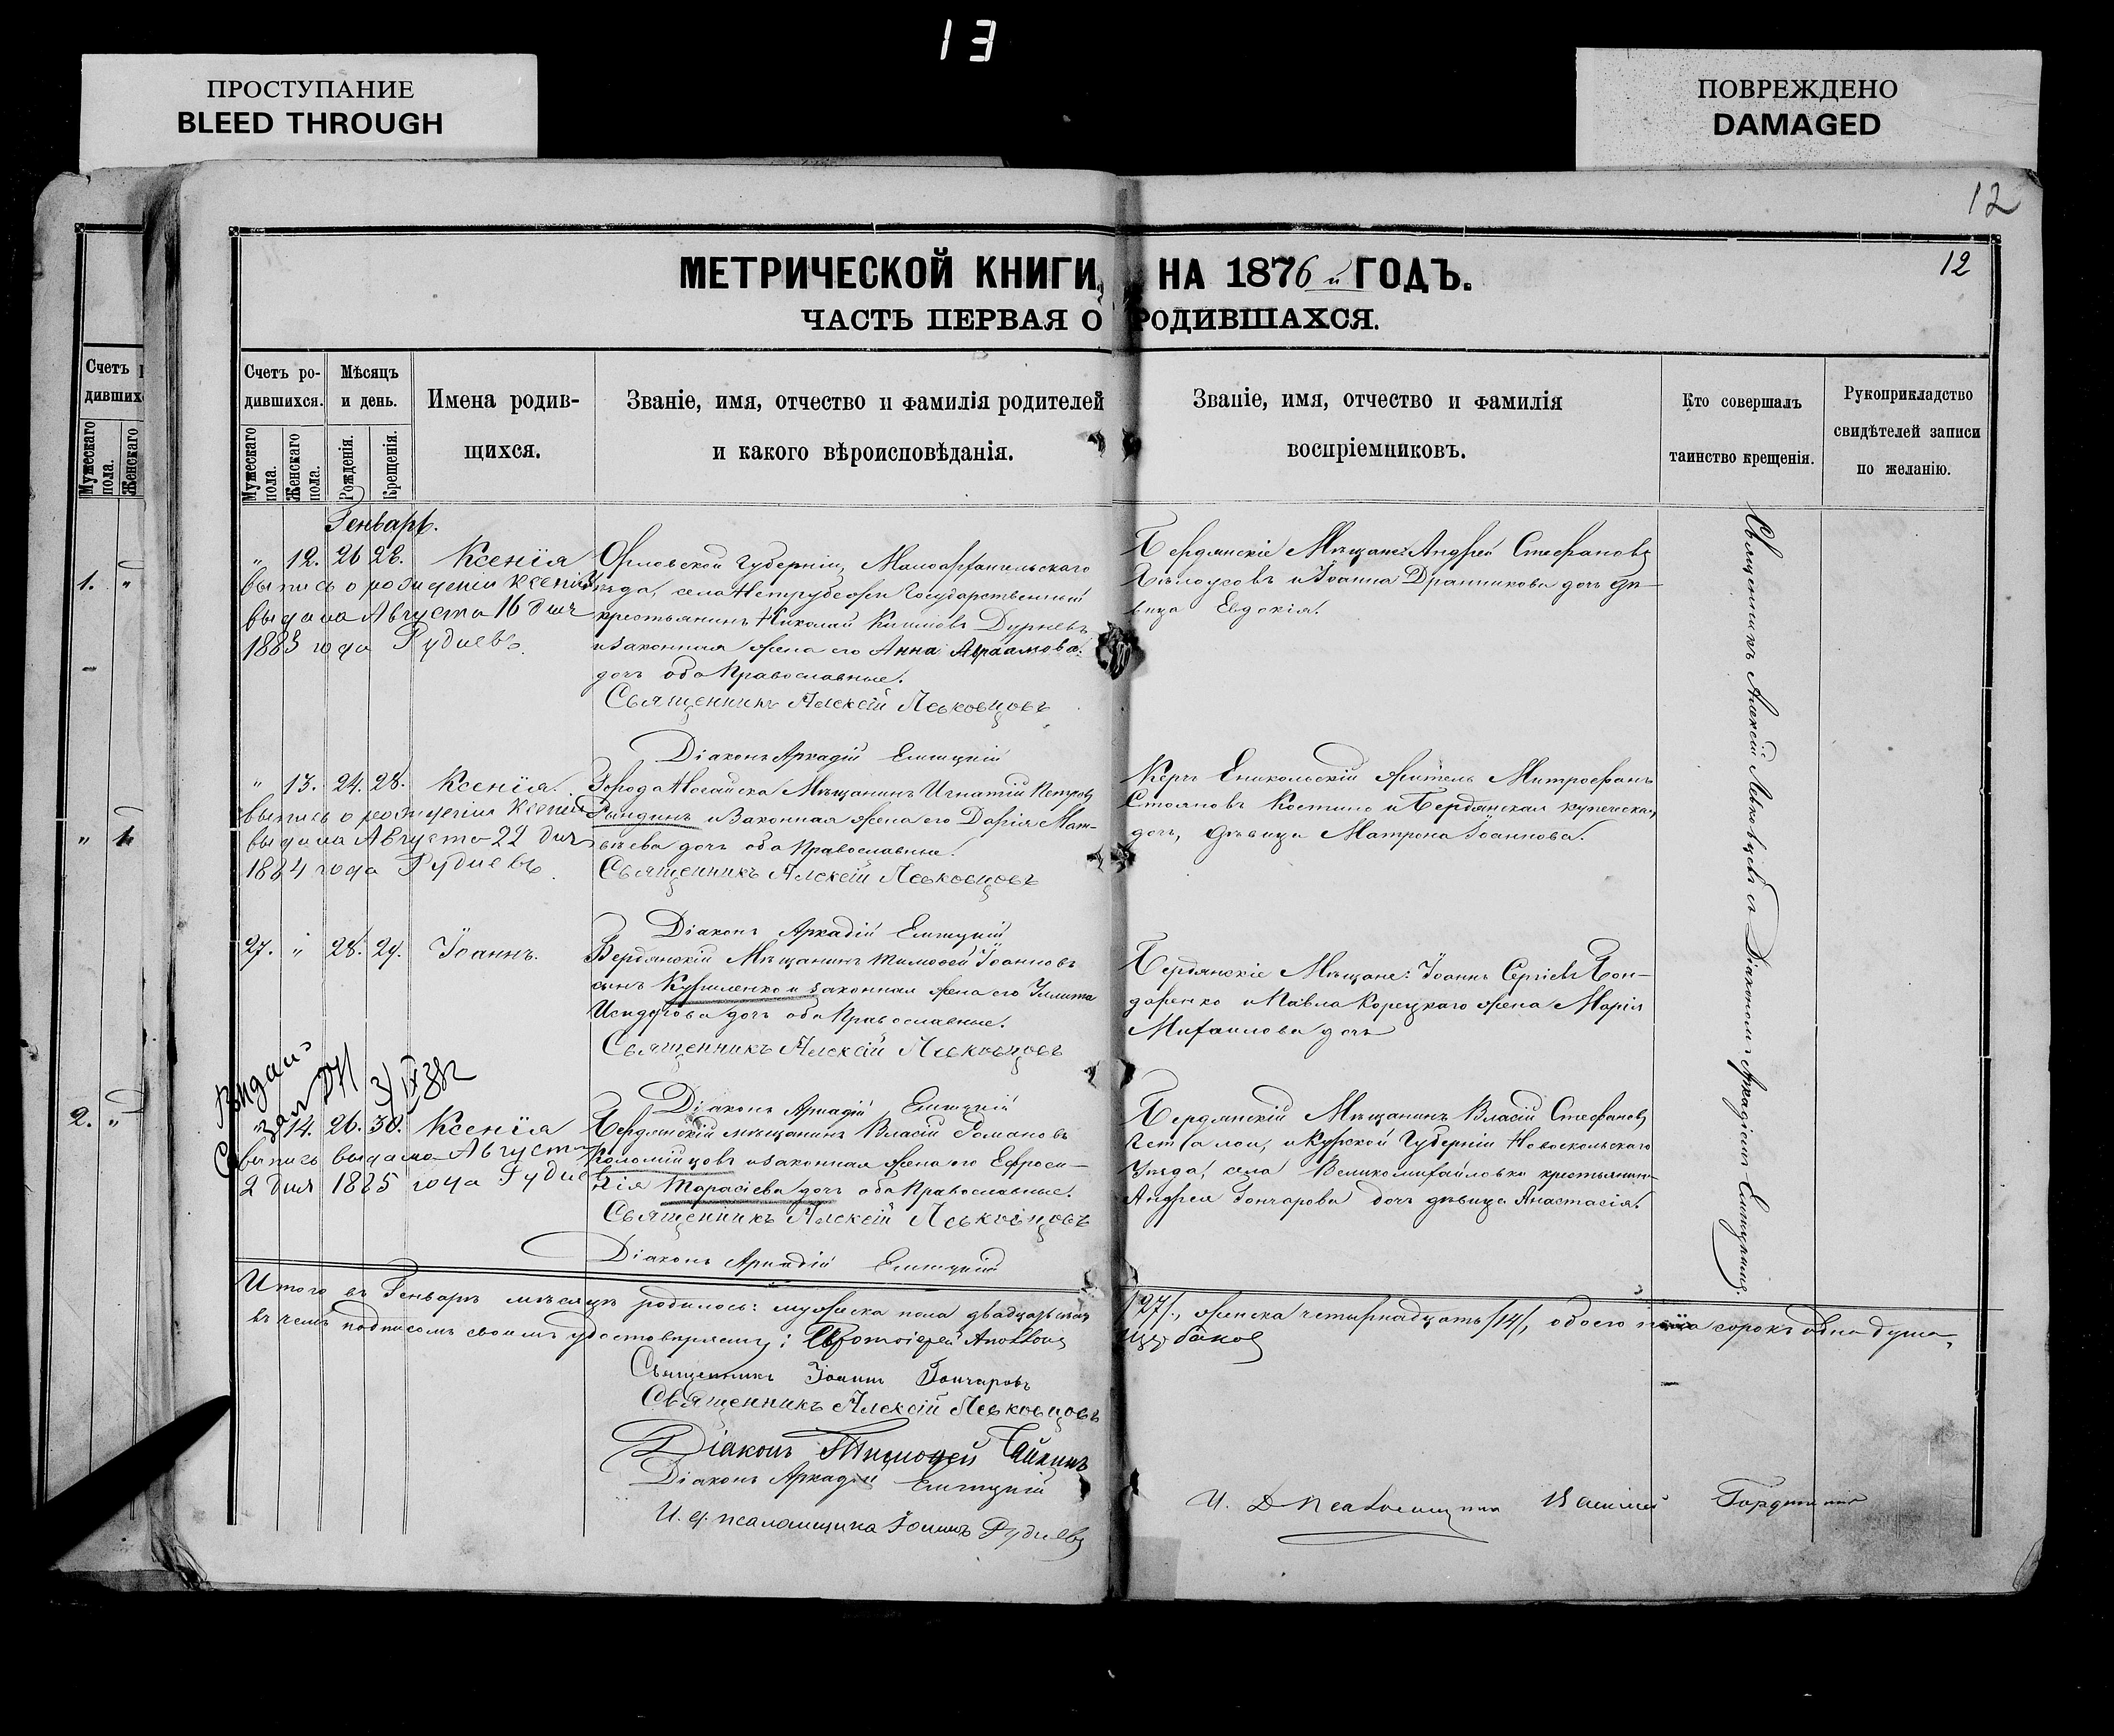 13
ПРОСТУПАНИЕ
BLEED THROUGH
ПОВРЕЖДЕНО
DAMAGED
12
12
МЕТРИЧЕСКОЙ КНИГИ НА 1876 й ГОДЪ.
ЧАСТЬ ПЕРВАЯ О РОДИВШАХСЯ.
Счетъ
дивших
Мужескаго пола.
Женскаго
1. "
" 1
2. "
Счетъ ро-
дившихся.
Мужескаго пола.
Женскаго пола.
Мѣсяцъ
и день.
Рожденія.
Крещенія.
Имена родив-
щихся.
Званіе, имя, отчество и фамилія родителей
и какого вѣроисповѣданія.
Званіе, имя, отчество и фамилія
воспріемниковъ.
Кто совершалъ
таинство крещенія.
Рукоприкладство
свидѣтелей записи
по желанію.
Генварь.
" 12. 26 28. Ксенія
выпись о рожденіи Ксеніи
выдана Августа 16 дня
1883 года Рудневъ
Орловской Губерніи, Малоархангельскаго
уѣзда, села Государственный
крестьянинъ Николай Дурневъ
и законная жена его Анна Авраамова
дочь оба Православные.
Священникъ Алексій Левковцовъ
Діаконъ Аркадій
Бердянскіе Мѣщане: Андрей Стефановъ
Бѣлоусовъ и Іоанна Дранникова дочь дѣ-
вица Евдокія.
" 13. 24. 28. Ксенія.
выпись о рожденіи Ксеніи
выдана Августа 22 дня
1884 года Рудневъ
Города Ногайска Мѣщанинъ Игнатій Петровъ
Рындинъ и Законная жена его Дарія Мат-
вѣева дочь оба Православные.
Священникъ Алексій Левковцовъ
Діаконъ Аркадій
Керчь Еникольскій житель Митрофанъ
Стояновъ и Бердянская купеческая
дочь, дѣвица Матрона Іоаннова.
27. " 28. 29. Іоаннъ.
Бердянскій Мѣщанинъ Тимофей Іоанновъ
сынъ Куриленко и законная жена его Улита
Исидорова дочь оба Православные.
Священникъ Алексій Левковцовъ
Діаконъ Аркадій
Бердянскіе Мѣщане: Іоаннъ Сергіевъ Бон-
даренко и Павла Корецкаго жена Марія
Михаилова дочь
" 14. 26. 30. Ксенія
выпись выдана Августа
2 дня 1885 года Руднев
Бердянскій мѣщанинъ Власій Романовъ
Коломійцовъ и законная жена его Ефроси-
нія Тарасіева дочь оба Православные.
Священникъ Алексій Левковцовъ
Діаконъ Аркадій
Бердянскій Мѣщанинъ Власій Стефановъ
и Курской Губерніи Новоскольскаго
Уѣзда, села Великомихайловки крестьянина
Андрея Гончарова дочь дѣвица Анастасія.
Священникъ Алексій Левковцевъ съ Діакономъ Аркадіемъ
Итого въ Генварѣ мѣсяцѣ родилось: мужеска пола двадцать семь /27/, женска четырнадцать /14/, обоего пола сорокъ одна душа,
въ чемъ подписомъ своимъ удостовѣряемъ:
Священникъ Іоаннъ Гончаровъ
Священникъ Алексій Левковцовъ
Діаконъ Тимофей
Діаконъ Аркадій
И. д. псаломщика Іоаннъ Рудневъ
И. Д. Псаломщика